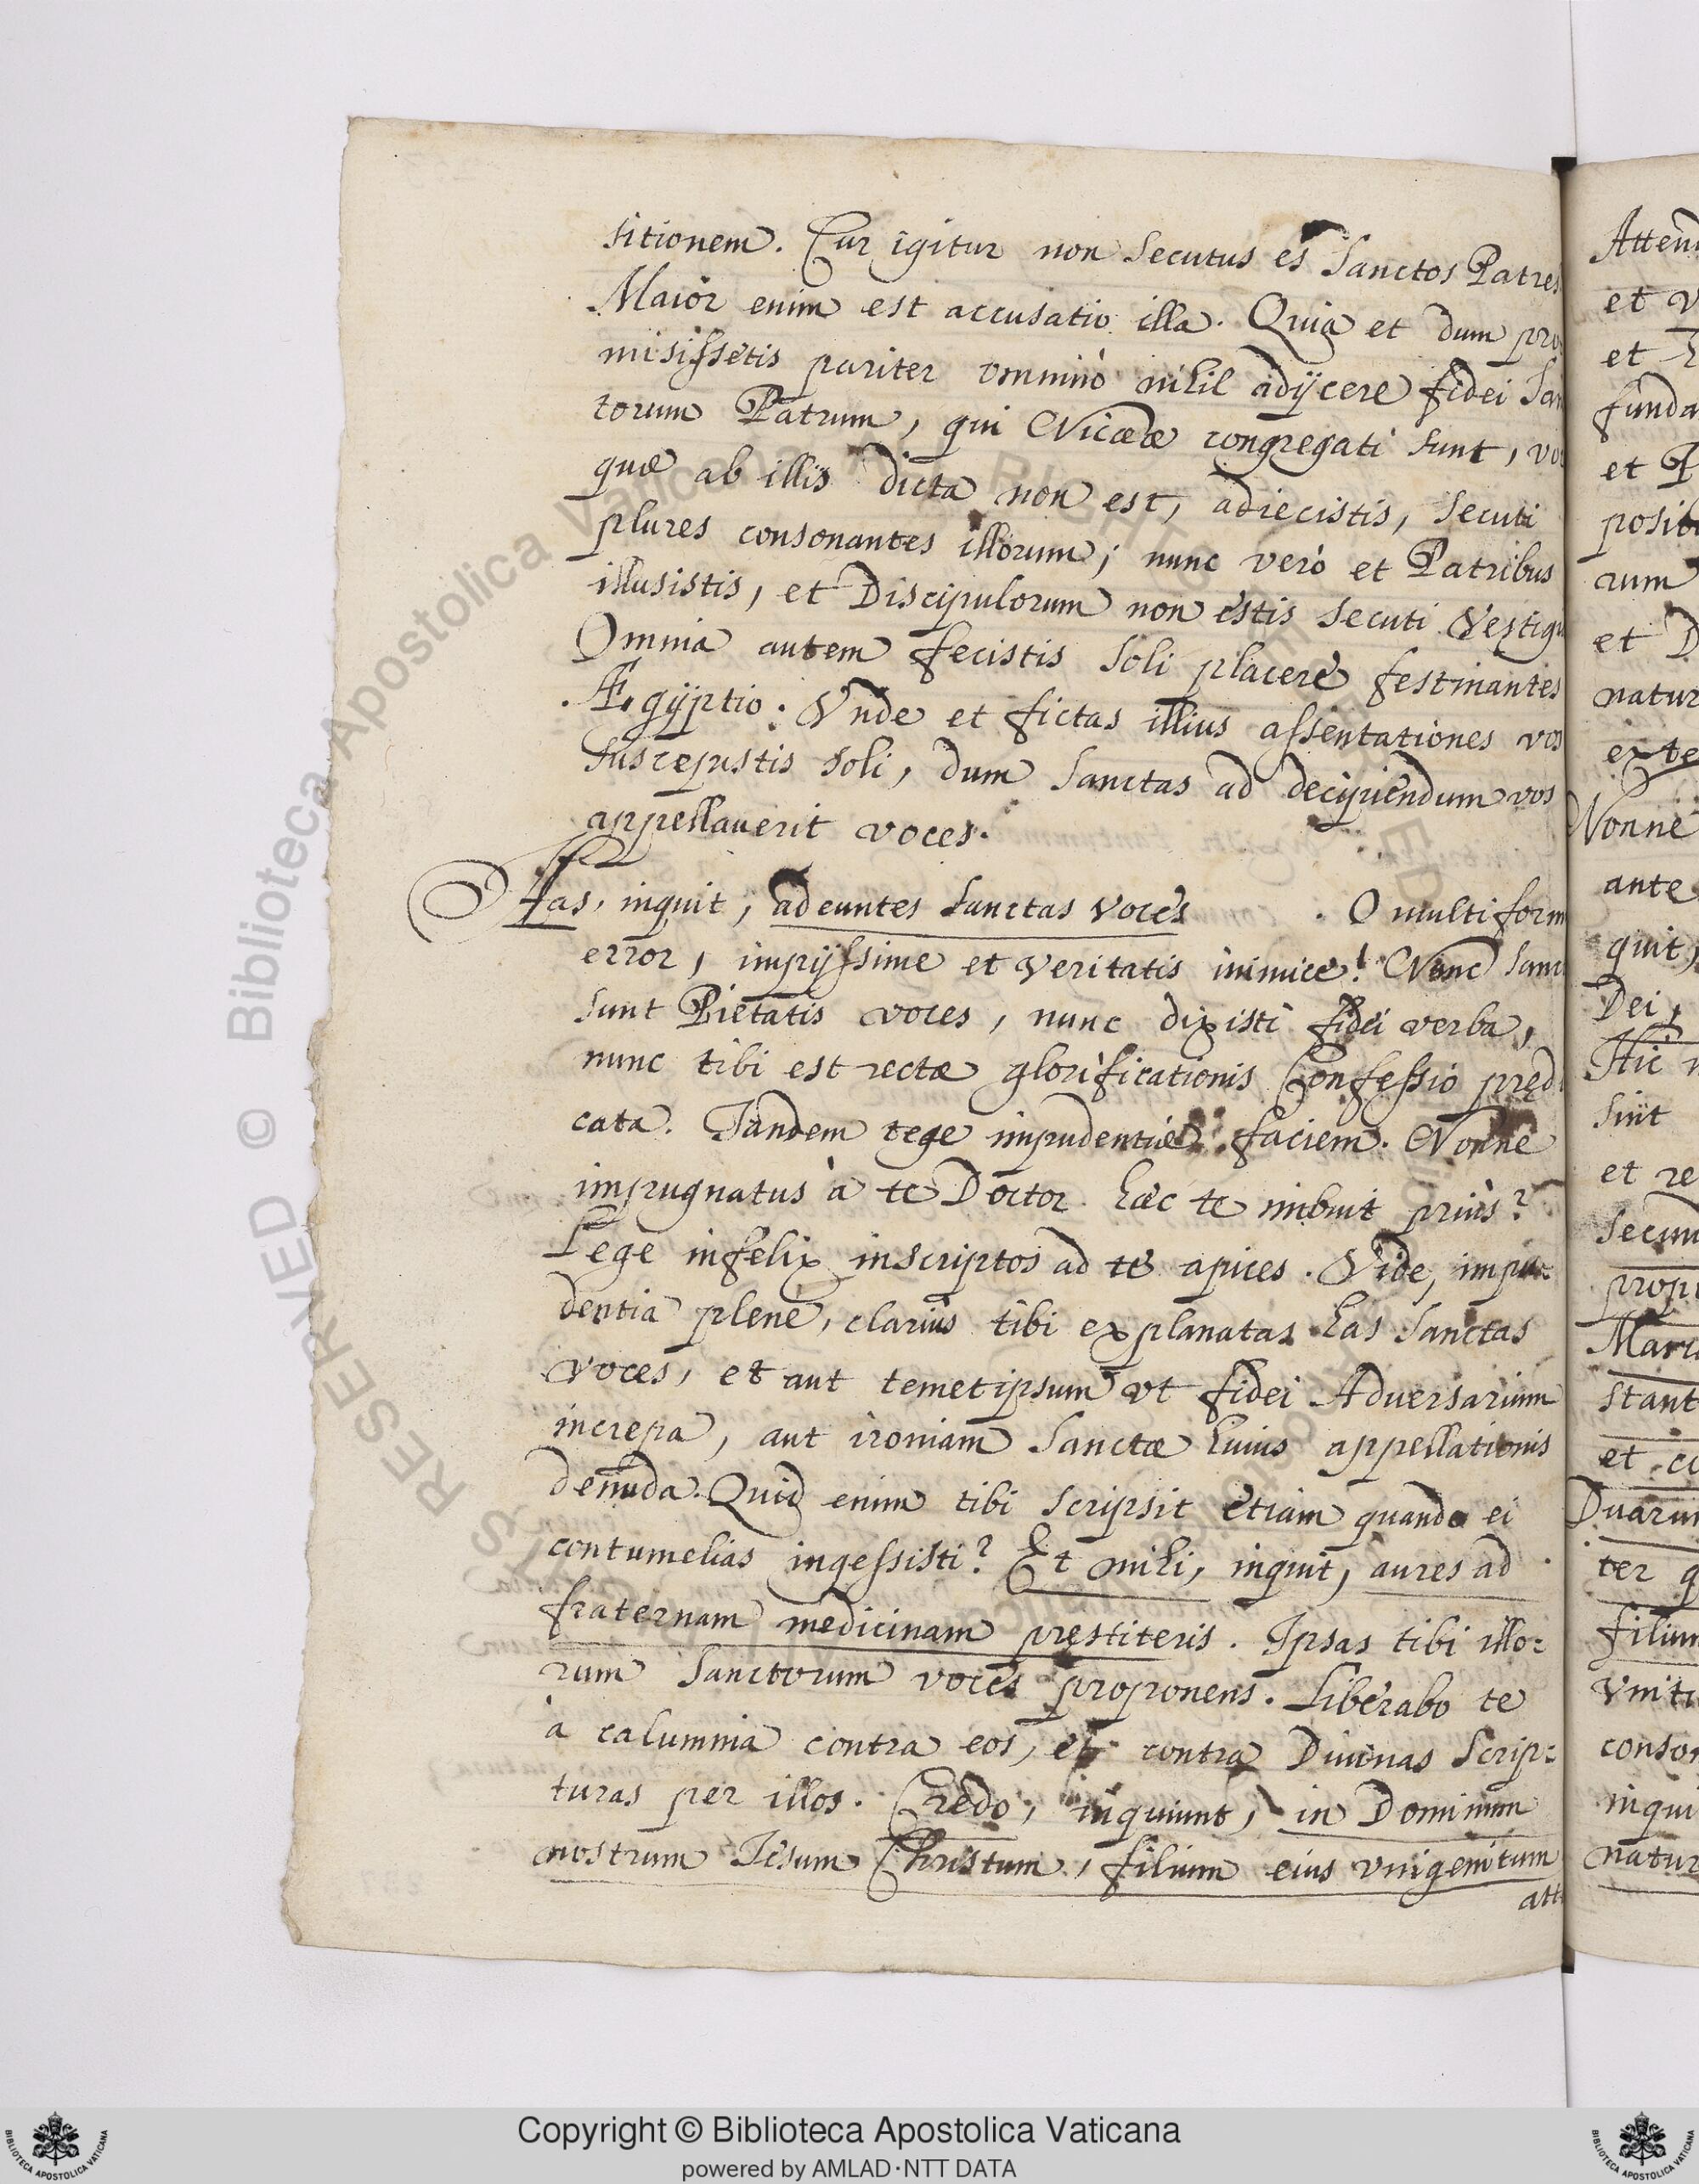 sitionem. Cur igitur non secutus es Sanctos Patres
Maior enim est accusatio illa. Quia et dum pro
misissetis pariter omninò nihil adijcere fidei San
torum Patrum, qui Nicææ congregati sunt, vo
quæ ab illis dicta non est, adiecistis, secuti
plures consonantes illorum; nunc verò et Patribus
illusistis, et Discipulorum non estis secuti Vestigi
Omnia autem fecistis soli placere festinantes
Ægÿptio. Vnde et fictas illius assentationes vos
suscepistis soli, dum Sanctas ad decipiendum vos
appellauerit voces.
Has, inquit, adeuntes sanctas voces . O multiform
error, impijssime et veritatis inimice! Nunc san
sunt Pietatis voces, nunc dixisti fidei verba,
nunc tibi est rectæ glorificationis Confessio pręd
cata. Tandem tege impudentiæ faciem. Nonne
impugnatus à te Doctor hæc te imbuit priùs?
Lege infelix inscriptos ad te apices. Vide, impu:
dentia plene, clariùs tibi explanatas has Sanctas
voces, et aut temetipsum vt fidei Adversarium
increpa, aut ironiam Sanctæ huius appellationis
denuda. Quid enim tibi scripsit etiam quando ei
contumelias ingessisti? Et mihi, inquit, aures ad
fraternam medicinam pręstiteris. Ipsas tibi illo:
rum Sanctorum voces proponens. Liberabo te
à calumnia contra eos, et contra Diuinas Scrip:
turas per illos. Credo, inquiunt, in Dominum
nostrum Iesum Christum, filium eius vnigenitum
att
Atten
et v
et
funda
et P
posit
rum
et D
natur
exte
Nonne
ante
quit,
Dei,
Hic n
sint
et re
secun
propr
Mari
stant
et co
Duarum
ter q
filium
Vniti
conso
inqui
natur
RESERVED © Biblioteca Apostolica Vaticana
Copyright © Biblioteca Apostolica Vaticana
powered by AMLAD·NTT DATA
BIBLIOTECA APOSTOLICA VATICANA
BIBLIOTECA APOSTOLICA VATICANA